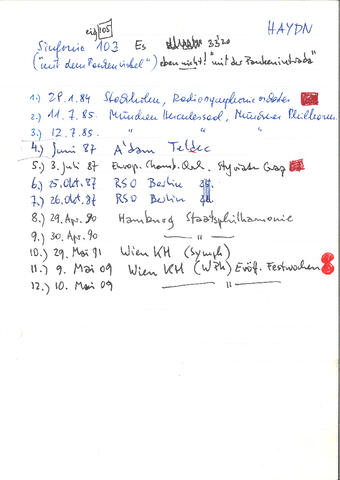 eig 105
HAYDN
Sinfonie 103 Es 33'20
("mit dem Paukenwirbel") eben nicht! "mit der Paukenintrada"
1.) 28.1.84 Stockholm, Radiosymphonieorchester
2.) 11.7.85. München Herkulessaal, Münchner Philharm.
3.) 12.7.85. " " "
4.) Juni 87 A'dam Teldec
5.) 3. Juli 87 Europ. Chamb. Orch. Styriarte Graz
6.) 25. Okt. 87 RSO Berlin
7.) 26. Okt. 87 RSO Berlin
8.) 29. Apr. 90 Hamburg Staatsphilharmonie
9.) 30. Apr. 90 — " —
10.) 29. Mai 91 Wien KH (Symph)
11.) 9. Mai 09 Wien KH (WPh) Eröf. Festwochen
12.) 10. Mai 09 — " —